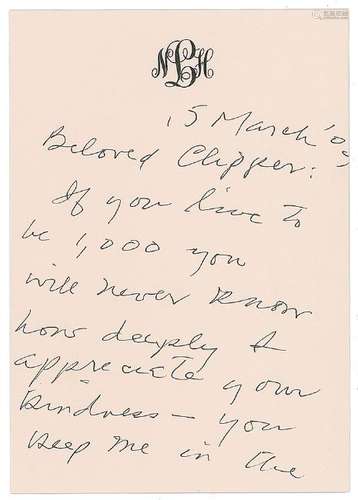 NLH
15 March '05
Beloved Clipper:
If you live to
be 1,000 you
will never know
how deeply I
appreciate your
kindness — you
keep me in the